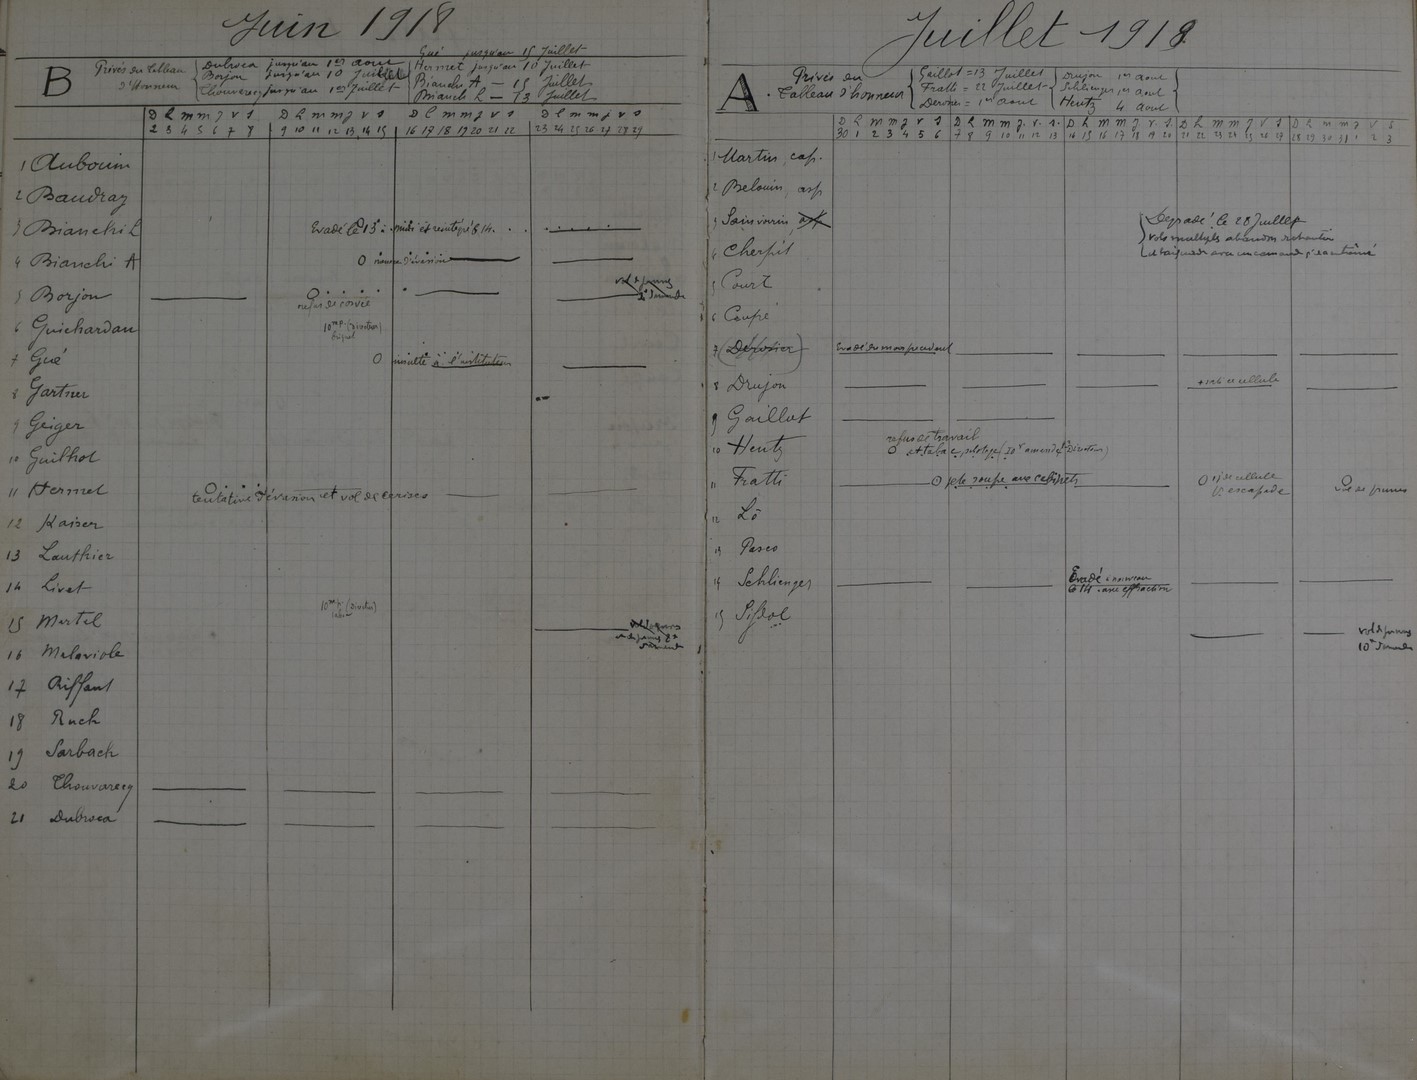 Juin 1918
B
Privés du tableau d'Honneur
Dubroca jusqu'au 1er aout
Borjon jusqu'au 10 Juillet
Thouverecq jusqu'au 1er Juillet
Gué jusqu'au 15 Juillet
Hermet jusqu'au 10 Juillet
Bianchi A — 15 Juillet
Bianchi L — 13 Juillet
D L m m J v s D L m m J v s D L m m J v s D L m m J v s
2 3 4 5 6 7 8 9 10 11 12 13 14 15 16 17 18 19 20 21 22 23 24 25 26 27 28 29
1 Aubouin
2 Baudray
3 Bianchi L Evadé le 13 à midi et réintégré 14.
4 Bianchi A 0 d'évasion
5 Borjon 0 refus de corvée vol de prunes
6 Guichardan 10 (Direction)
7 Gué 0 insulte à l'instituteur
8 Gartner
9 Geiger
10 Guilhot
11 Hermet 0 tentative d'évasion et vol de cerises
12 Kaiser
13 Lauthier
14 Livet
15 Martel 10
16 Malaviole
17 Riffaut
18 Ruch
19 Sarbach
20 Thouverecq
21 Dubroca
Juillet 1918
A
Privés du Tableau d'honneur
Gaillot = 13 Juillet
Fratti = 22 Juillet
= 1er aout
Drujon 1er aout
Schlienger 1er aout
Heutz 4 aout
D L m m J v s D L m m J. v. s. D L m m J v s D L m m J v s D L m m J v s
30 1 2 3 4 5 6 7 8 9 10 11 12 13 14 15 16 17 18 19 20 21 22 23 24 25 26 27 28 29 30 31 1 2 3
1 Martin, cap.
2 Belouin, asp
3 Sainvoirin, asp Dégradé le 28 Juillet
vols multiples abandon
4 Cherpit
5 Court
6 Coupé
7 Evadé du mois précédent
8 Drujon cellule
9 Gaillot
10 Heutz refus de travail
0 et tabac
11 Fratti 0 jete soupe aux cabinets 0 cellule escapade vol de prunes
12 Lô
13 Pasco
14 Schlienger Evadé à nouveau
le 14 avec effraction
15 Sifsol
vol de prunes
10